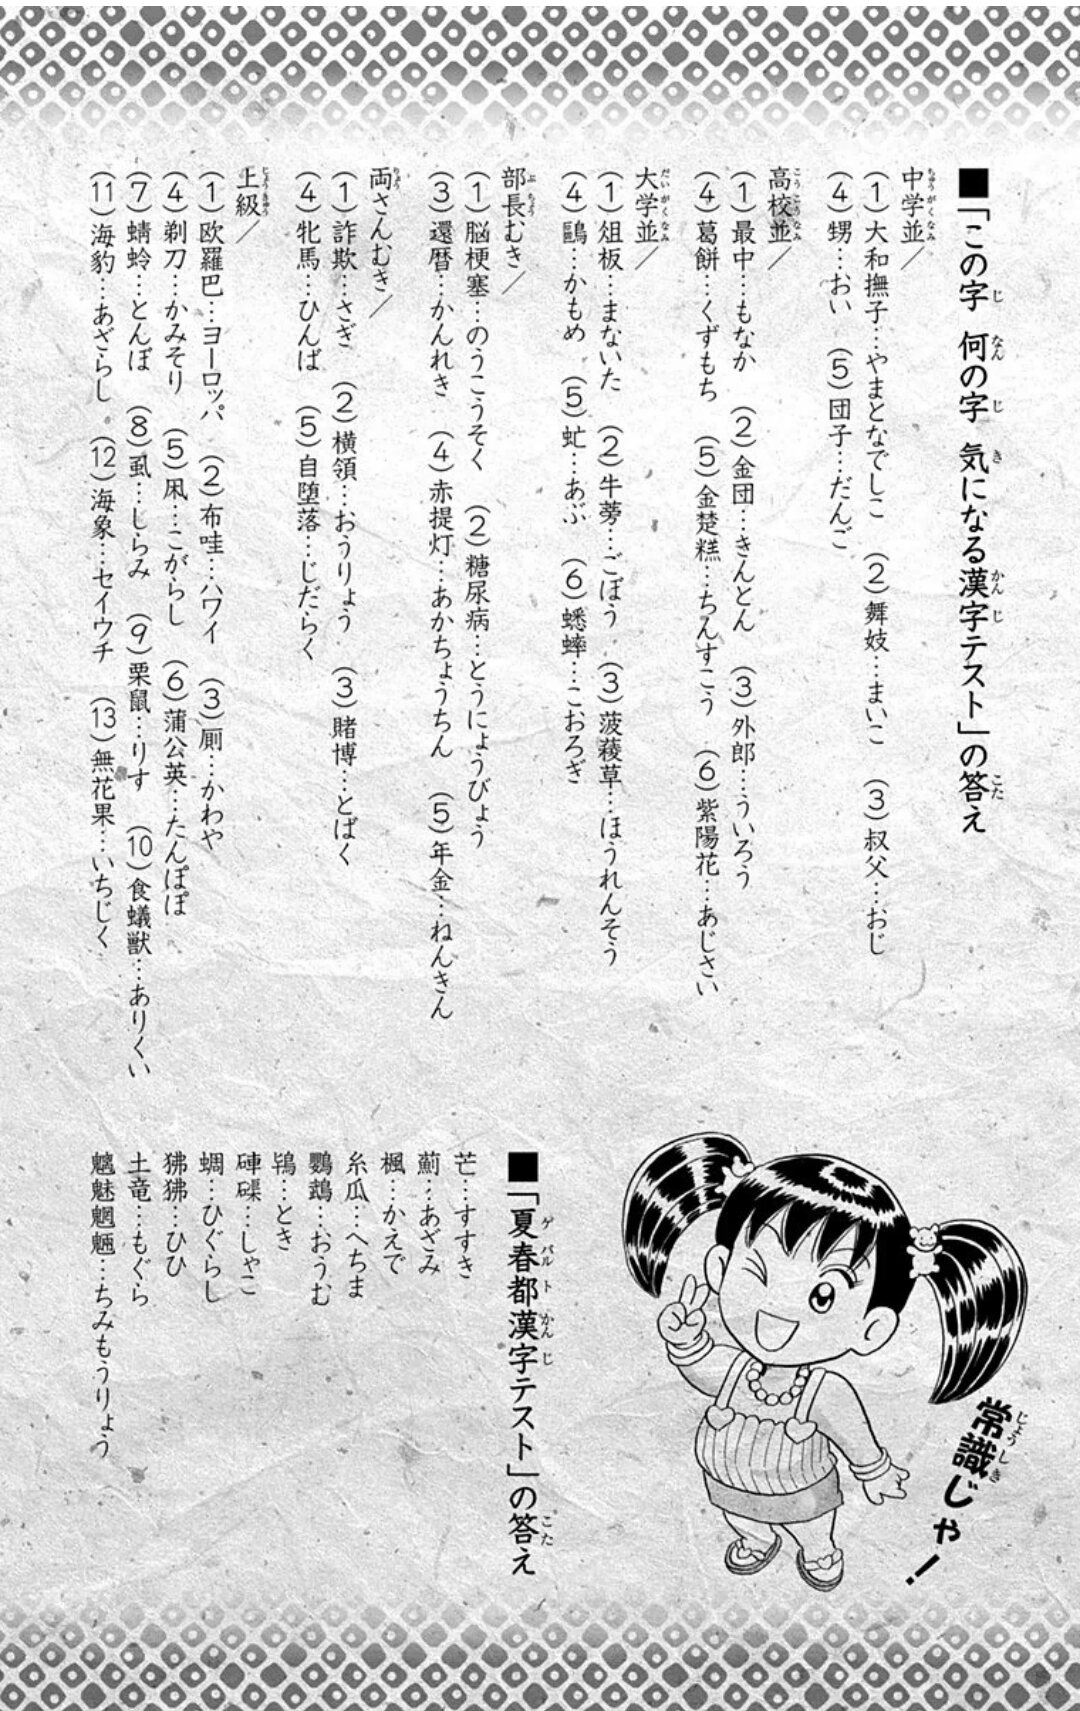 ■「この字 何の字 気になる漢字テスト」の答え
中学並／
(1)大和撫子…やまとなでしこ (2)舞妓…まいこ (3)叔父…おじ
(4)甥…おい (5)団子…だんご
高校並／
(1)最中…もなか (2)金団…きんとん (3)外郎…ういろう
(4)葛餅…くずもち (5)金楚糕…ちんすこう (6)紫陽花…あじさい
大学並／
(1)俎板…まないた (2)牛蒡…ごぼう (3)菠薐草…ほうれんそう
(4)鷗…かもめ (5)虻…あぶ (6)蟋蟀…こおろぎ
部長むき／
(1)脳梗塞…のうこうそく (2)糖尿病…とうにょうびょう
(3)還暦…かんれき (4)赤提灯…あかちょうちん (5)年金…ねんきん
両さんむき／
(1)詐欺…さぎ (2)横領…おうりょう (3)賭博…とばく
(4)牝馬…ひんば (5)自堕落…じだらく
上級／
(1)欧羅巴…ヨーロッパ (2)布哇…ハワイ (3)厠…かわや
(4)剃刀…かみそり (5)凩…こがらし (6)蒲公英…たんぽぽ
(7)蜻蛉…とんぼ (8)虱…しらみ (9)栗鼠…りす (10)食蟻獣…ありくい
(11)海豹…あざらし (12)海象…セイウチ (13)無花果…いちじく
常識じゃ！
■「夏春都漢字テスト」の答え
芒…すすき
薊…あざみ
楓…かえで
糸瓜…へちま
鸚鵡…おうむ
鴇…とき
硨磲…しゃこ
蜩…ひぐらし
狒狒…ひひ
土竜…もぐら
魑魅魍魎…ちみもうりょう